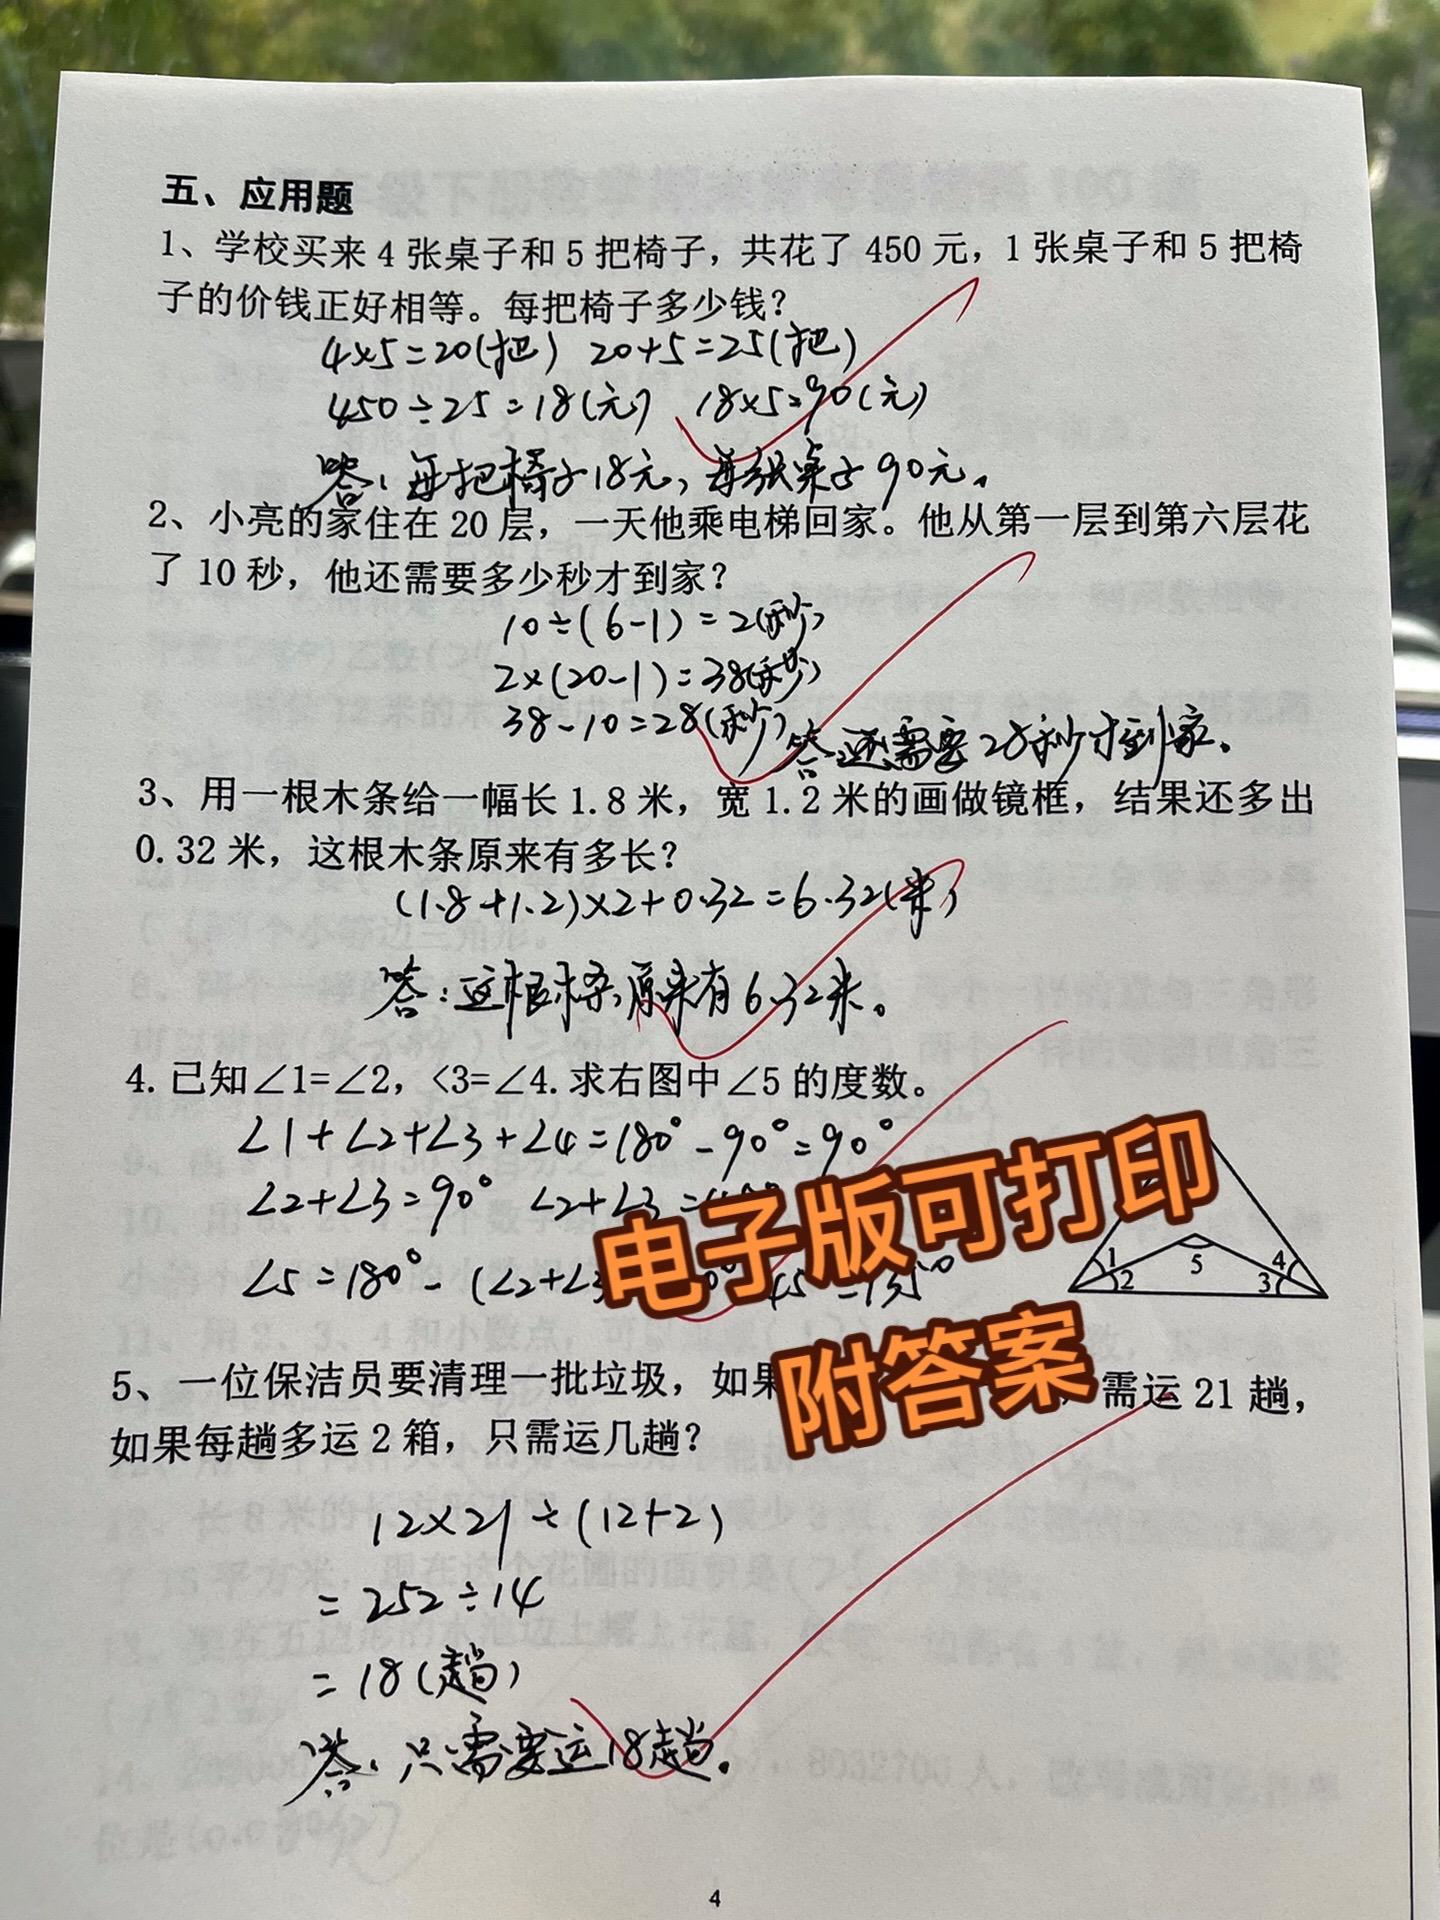 五、应用题
1、学校买来 4 张桌子和 5 把椅子，共花了 450 元，1 张桌子和 5 把椅
子的价钱正好相等。每把椅子多少钱？
4×5=20(把) 20+5=25(把)
450÷25=18(元) 18×5=90(元)
答：每把椅子18元，每张桌子90元。
2、小亮的家住在 20 层，一天他乘电梯回家。他从第一层到第六层花
了 10 秒，他还需要多少秒才到家？
10÷(6-1)=2(秒)
2×(20-1)=38(秒)
38-10=28(秒) 答：还需要28秒才到家。
3、用一根木条给一幅长 1.8 米，宽 1.2 米的画做镜框，结果还多出
0.32 米，这根木条原来有多长？
(1.8+1.2)×2+0.32=6.32(米)
答：这根木条原来有6.32米。
4.已知∠1=∠2，<3=∠4.求右图中∠5 的度数。
∠1+∠2+∠3+∠4=180°-90°=90°
∠2+∠3=90° ∠2+∠3=
∠5=180°-(∠2+∠3 45 =135°
1 2 5 4 3
电子版可打印
附答案
5、一位保洁员要清理一批垃圾，如果 需运 21 趟，
如果每趟多运 2 箱，只需运几趟？
12×21÷(12+2)
=252÷14
=18(趟)
答：只需要运18趟。
4